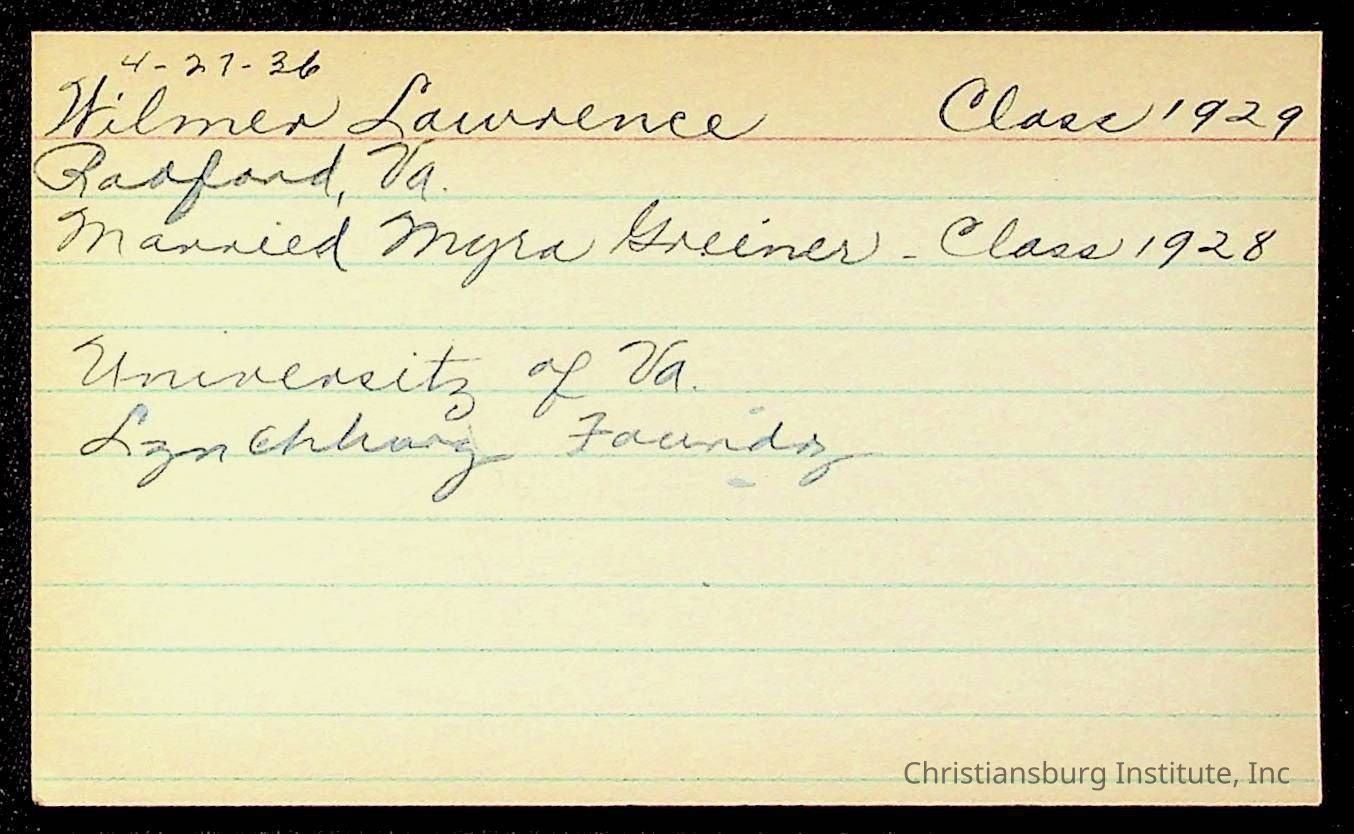 4-27-36
Wilmer Lawrence Class 1929
Radford, Va.
Married Myra Greiner - Class 1928
University of Va.
Lynchburg Foundry
Christiansburg Institute, Inc